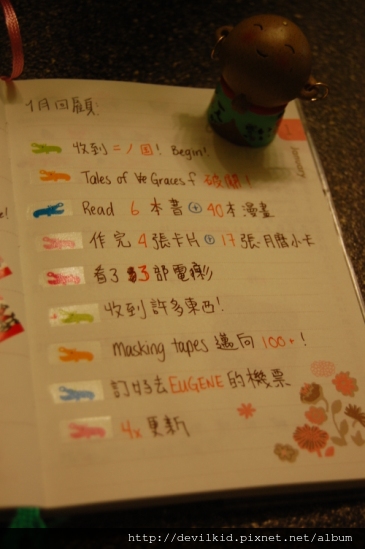 1月回顧:
收到二ノ国! Begin!
Tales of the Graces f 破關!
Read 6 本書 + 40本漫畫
作完 4張卡片 + 17張月曆小卡
看了 3部電影
收到許多東西!
masking tapes 邁向 100+!
訂好去EUGENE的機票
4x 更新
1
January
http://devilkid.pixnet.net/album